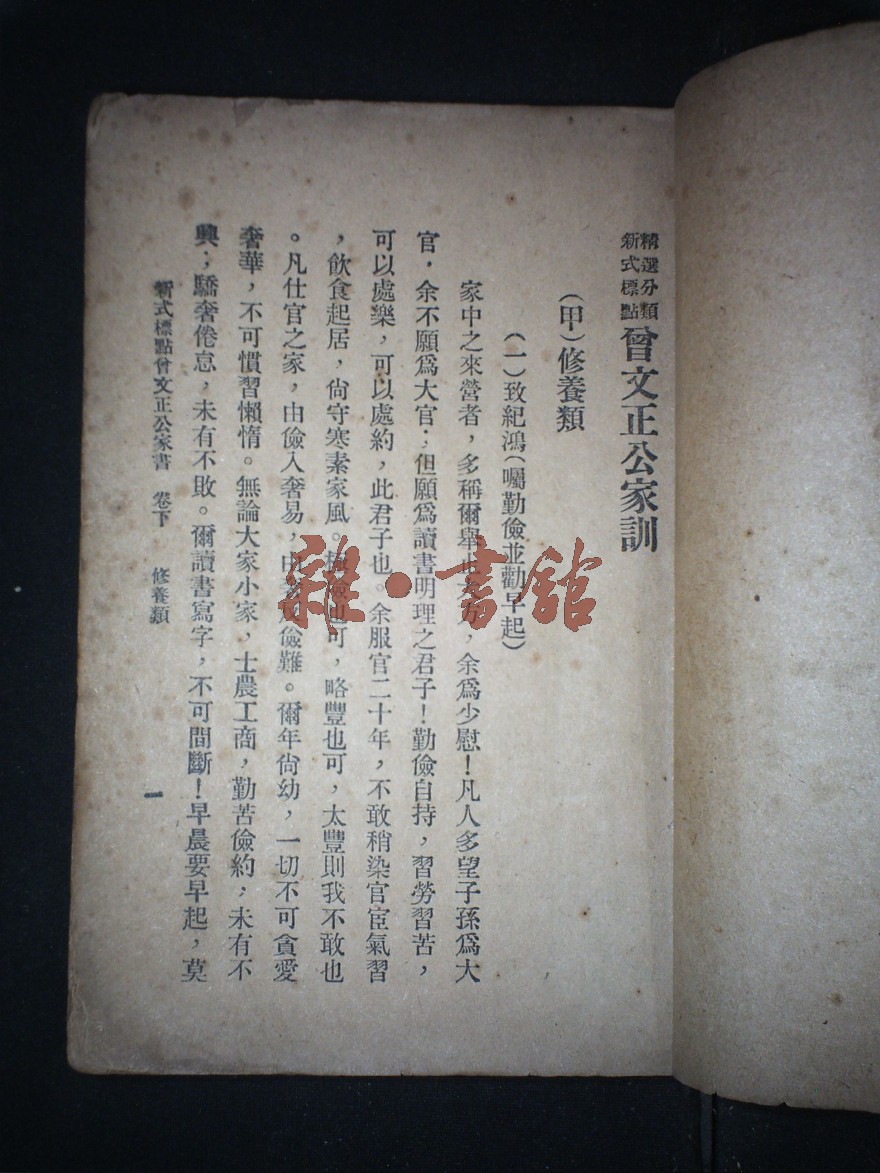 精選分類
新式標點
曾文正公家訓
(甲)修養類
(一)致紀鴻(囑勤儉並勸早起)
家中之來營者，多稱爾舉 大方，余爲少慰！凡人多望子孫爲大
官，余不願爲大官；但願爲讀書明理之君子！勤儉自持，習勞習苦，
可以處樂，可以處約，此君子也。余服官二十年，不敢稍染官宦氣習
，飲食起居，尙守寒素家風。極儉也可，略豐也可，太豐則我不敢也
。凡仕官之家，由儉入奢易，由 儉難。爾年尙幼，一切不可貪愛
奢華，不可慣習懶惰。無論大家小家，士農工商，勤苦儉約，未有不
興；驕奢倦怠，未有不敗。爾讀書寫字，不可間斷！早晨要早起，莫
新式標點曾文正公家書 卷下 修養類 一
雜·書館